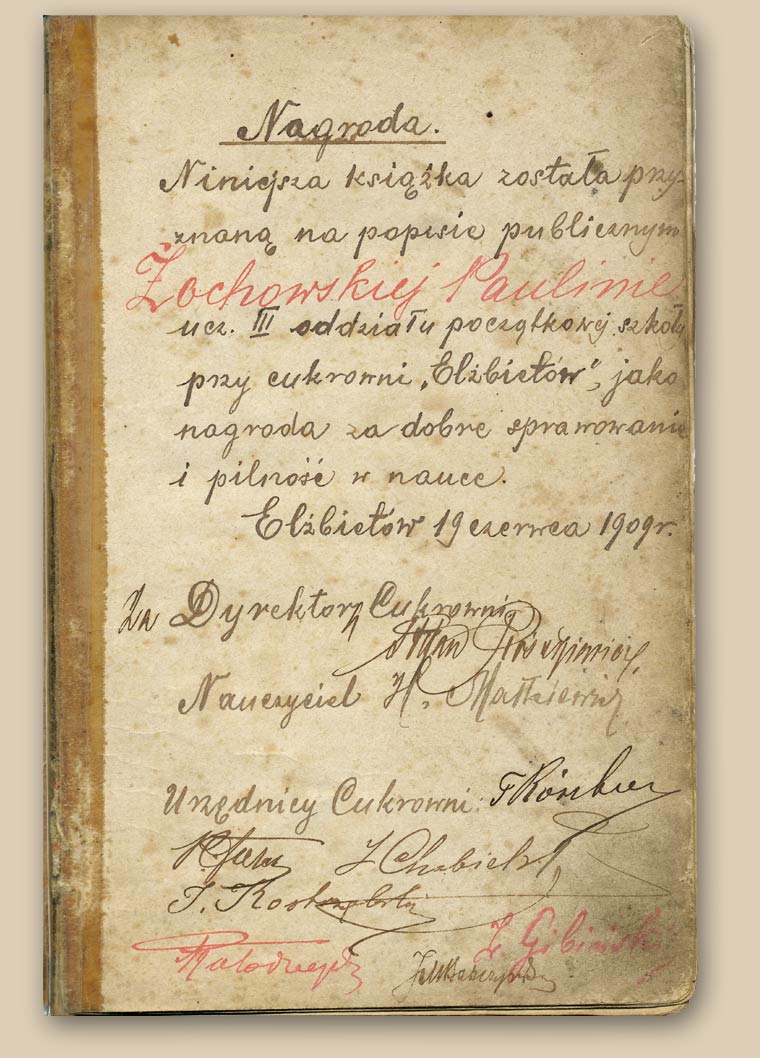 Nagroda.
Niniejsza książka została przy-
znaną na popisie publicznym
Żochowskiej Paulinie
ucz. III oddziału początkowej szkoły
przy cukrowni „Elżbietów”, jako
nagroda za dobre sprawowanie
i pilność w nauce.
Elżbietów 19 czerwca 1909r.
Za Dyrektora Cukrowni
Nauczyciel H. Małkiewicz
Urzędnicy Cukrowni: